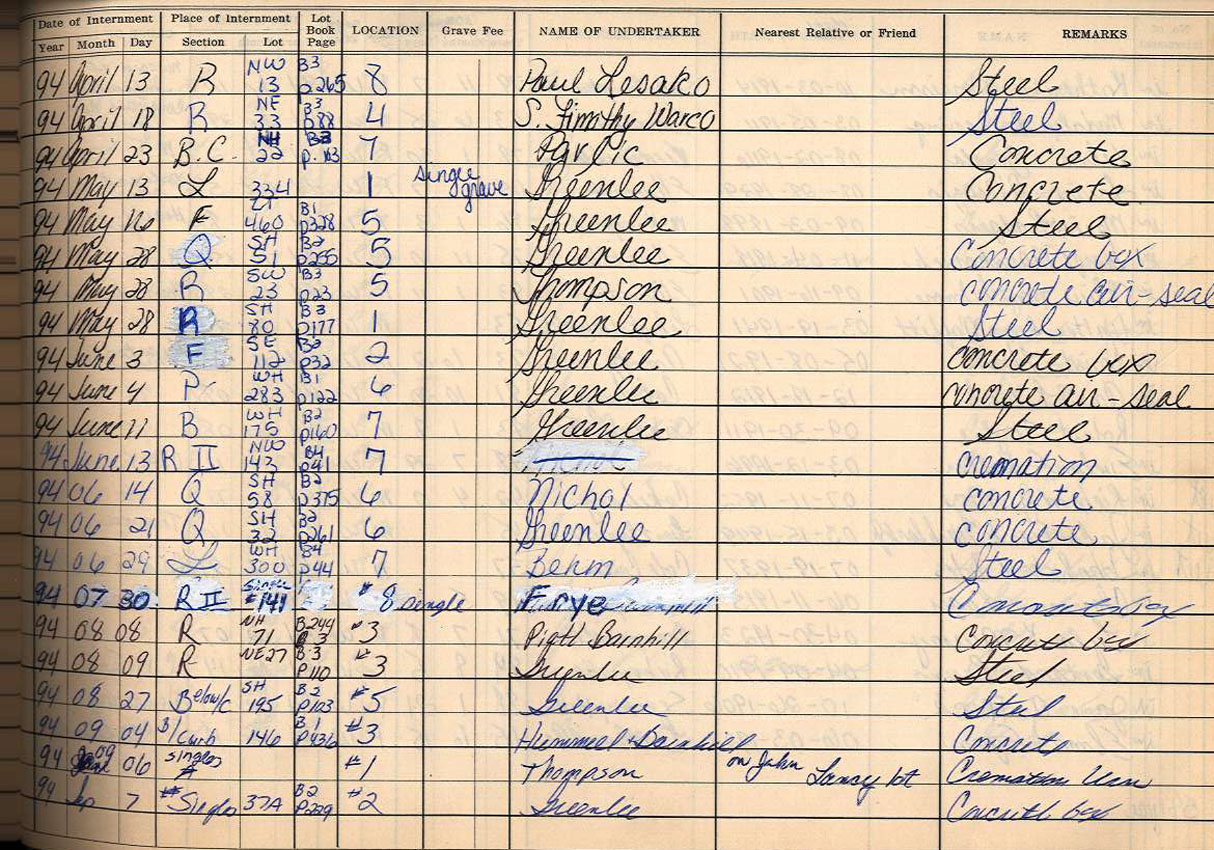 Date of Internment Place of Internment Lot Book Page LOCATION Grave Fee NAME OF UNDERTAKER Nearest Relative or Friend REMARKS
Year Month Day Section Lot
94 April 13 R NW 13 B3 p265 8 Paul Lesako Steel
94 April 18 R NE 33 B3 p88 4 S. Timothy Warco Steel
94 April 23 B.C. NH 22 B3 p. 113 7 Concrete
94 May 13 L 334 1 single grave Greenlee Concrete
94 May 16 F 460 B1 p328 5 Greenlee Steel
94 May 28 Q SH 51 B2 5 Greenlee Concrete box
94 May 28 R SW 23 B3 p23 5 Thompson concrete air-seal
94 May 28 R SH 80 B3 p177 1 Greenlee Steel
94 June 3 F SE 112 B2 p32 2 Greenlee concrete box
94 June 4 P WH 283 B1 p122 6 Greenlee concrete air-seal
94 June 11 B WH 175 B2 p160 7 Greenlee Steel
94 June 13 R II NW 143 B4 p41 7 cremation
94 06 14 Q SH 58 B2 p375 6 Nichol concrete
94 06 21 Q SH 32 B2 p261 6 Greenlee concrete
94 06 29 L WH 300 B4 p44 7 Behm Steel
94 07 30 R II Single #141 #8 Single Frye
94 08 08 R NH 71 B249 3 #3 Piatt Barnhill Concrete box
94 08 09 R NE27 B3 P110 #3 Greenlee Steel
94 08 27 Below/c SH 195 B2 p103 #5 Greenlee Steel
94 09 04 B/Curb 146 B1 P436 #3 Hummel + Barnhill Concrete
94 09 06 singles # #1 Thompson on John Lancy lot Cremation Urn
94 Sep 7 # Singles 37A B2 P229 #2 Greenlee Concrete box